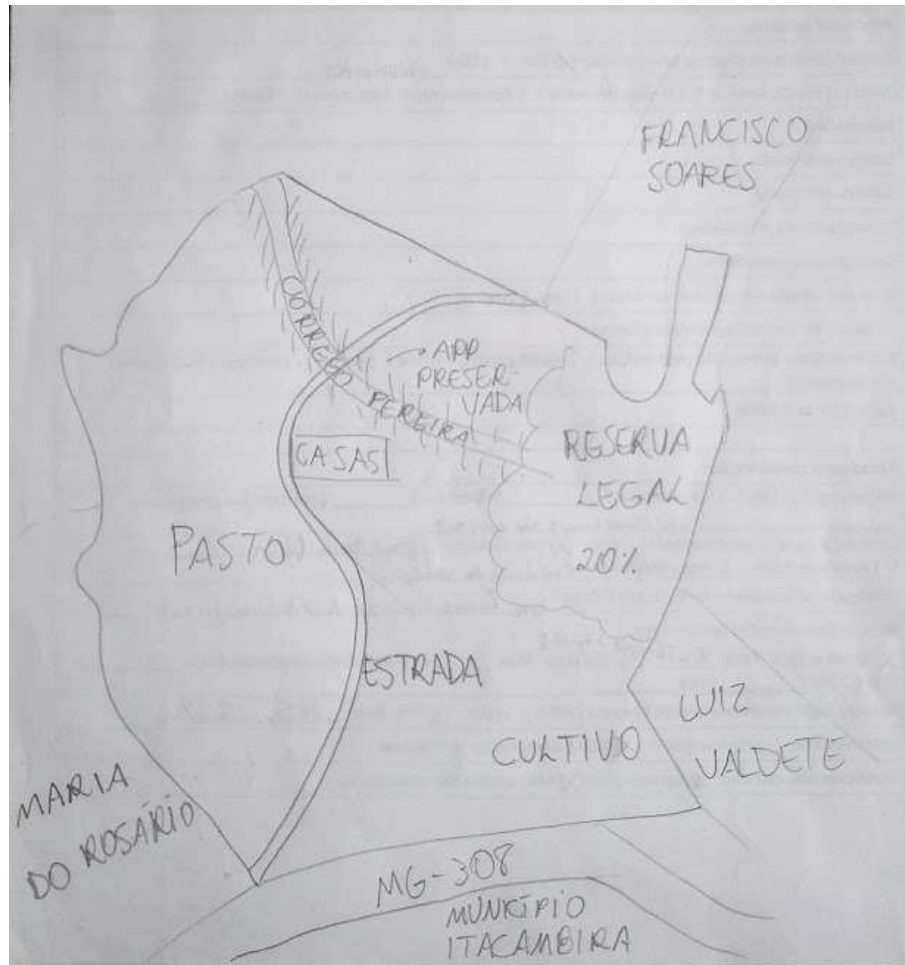 FRANCISCO
SOARES
CORREGO
PEREIRA
APP
PRESER-
VADA
CASAS
RESERVA
LEGAL
20%
PASTO
ESTRADA
CULTIVO
LUIZ
VALDETE
MARIA
DO ROSÁRIO
MG-308
MUNICÍPIO
ITACAMBIRA